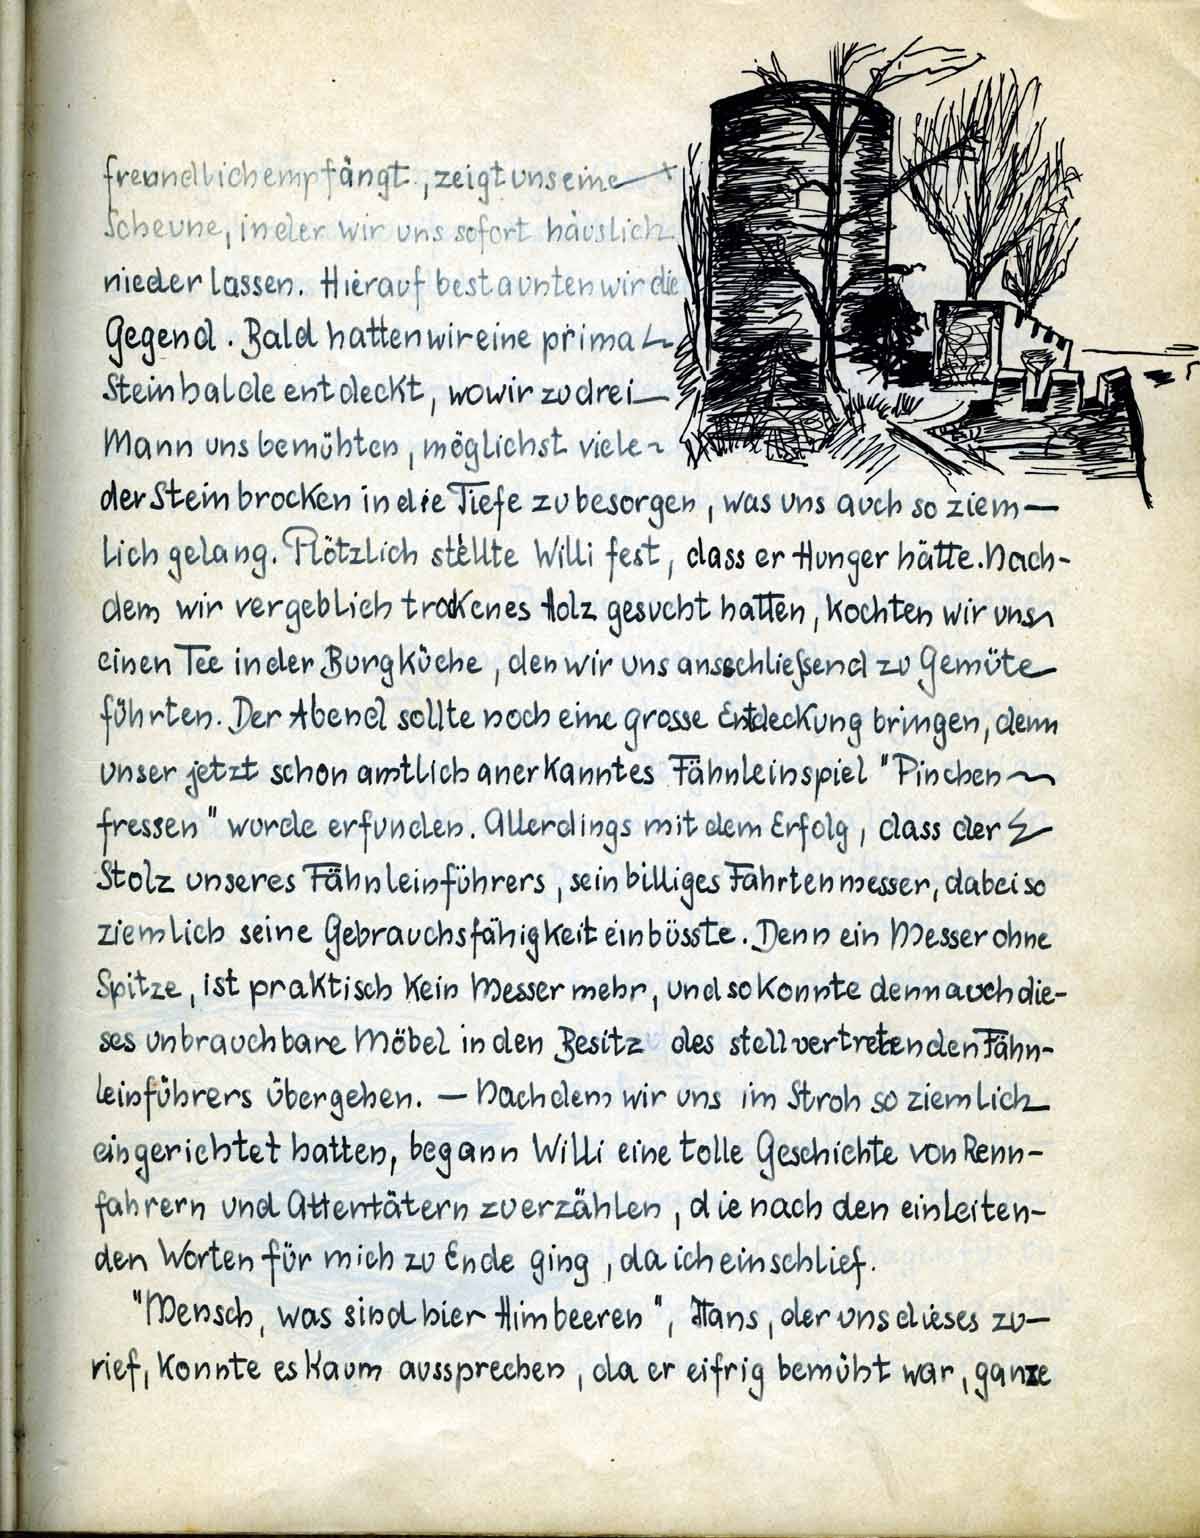 freundlich empfängt, zeigt uns eine
Scheune, in der wir uns sofort häuslich
nieder lassen. Hierauf bestaunten wir die
Gegend. Bald hatten wir eine prima
Steinhalde entdeckt, wo wir zu drei
Mann uns bemühten, möglichst viele
der Steinbrocken in die Tiefe zu besorgen, was uns auch so ziem-
lich gelang. Plötzlich stellte Willi fest, dass er Hunger hätte. Nach-
dem wir vergeblich trockenes Holz gesucht hatten, kochten wir uns
einen Tee in der Burgküche, den wir uns ansschließend zu Gemüte
führten. Der Abend sollte noch eine grosse Entdeckung bringen, denn
unser jetzt schon amtlich anerkanntes Fähnleinspiel "Pinchen
fressen" wurde erfunden. Allerdings mit dem Erfolg, dass der
Stolz unseres Fähnleinführers, sein billiges Fahrtenmesser, dabei so
ziemlich seine Gebrauchsfähigkeit einbüsste. Denn ein Messer ohne
Spitze, ist praktisch kein Messer mehr, und so konnte denn auch die-
ses unbrauchbare Möbel in den Besitz des stellvertretenden Fähn-
leinführers übergehen. — Nachdem wir uns im Stroh so ziemlich
eingerichtet hatten, begann Willi eine tolle Geschichte von Renn-
fahrern und Attentätern zu erzählen, die nach den einleiten-
den Worten für mich zu Ende ging, da ich einschlief.
"Mensch, was sind hier Himbeeren", Hans, der uns dieses zu-
rief, konnte es kaum aussprechen, da er eifrig bemüht war, ganze